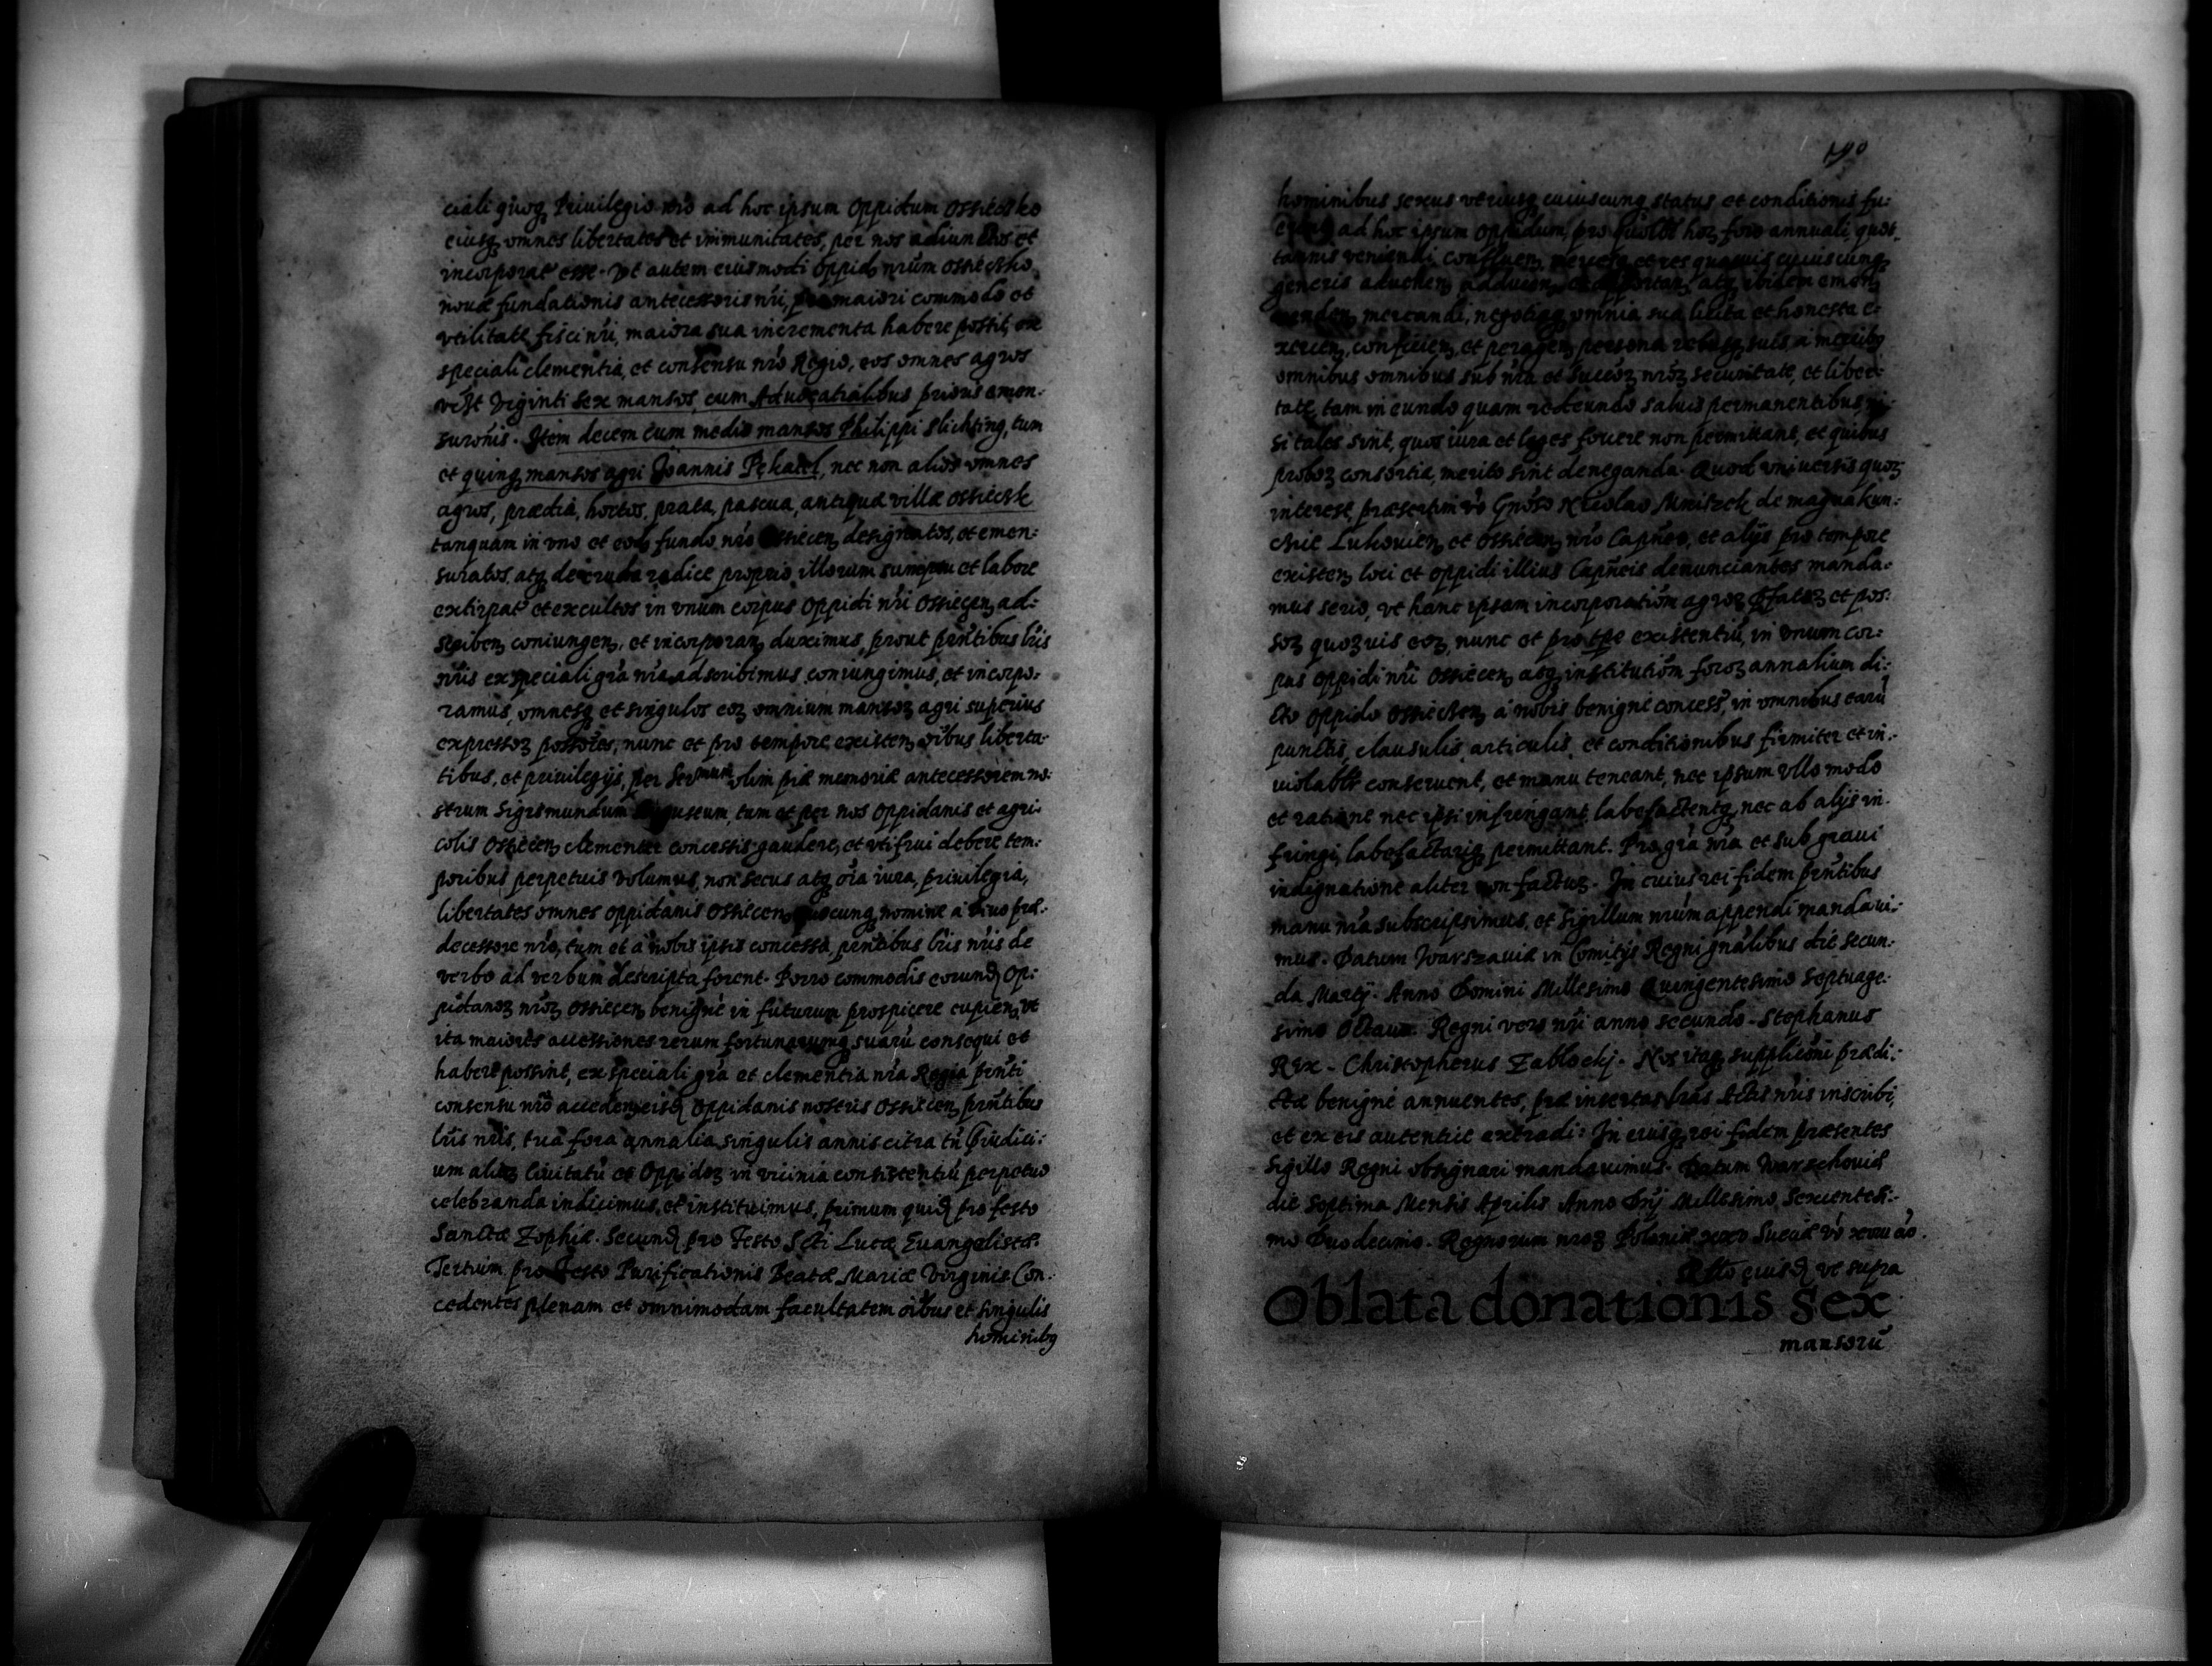 ciali quoq Priuilegio nro ad hoc ipsum Oppidum Ossiecsko
eiusq omnes libertates et immunitates, per nos adiunctos et
incorporat esse. Vt autem eiusmodi oppid nrum Ossiecsko
nouæ fundationis antecessoris nri, pro maiori commodo et
vtilitate fisci nri, maiora sua incrementa habere possit, ex
speciali clementia, et consensu nro Regio, eos omnes agros
Viginti Sex mansos, cum Aduocatialibus prious emen-
suronis. Item decem cum medio mansos Philippi Slichting, tum
et quinq mansos agri Joannis Pekarel, nec non alios omnes
agros, prædia, hortos, prata, pascua, antiquæ villæ Ossiecsk
tanquam in vno et eod fundo nro Ossiecen designatos, et emen:
suratos, atq de cruda radice proprio illorum sumptu et labore
extirpat et excultos in vnum corpus Oppidi nri Ossiecen, ad:
scriben, coniungen, et incorporan duximus, prout pñtibus lris
nris ex speciali gra nra adscribimus coniungimus, et incorpo:
ramus, omnesq et singulos eoz omnium mansoz agri superius
expressoz possores, nunc et pro tempore existen, oibus liberta-
tibus, et priuilegijs, per Sermum olim piæ memoriæ antecessorem no:
strum Sigismundum Augustum, tum et per nos Oppidanis et agri:
colis Ossiecen clementer concessis gaudere, et vti frui debere tem:
poribus perpetuis volumus, non secus atq oia iura, priuilegia,
libertates omnes oppidanis Ossiecen quocunq nomine a Diuo præ:
decessore nro, tum et a nobis ipsis concessa, pñtibus lris nris de
verbo ad verbum descripta forent. Porro commodis eorund Op:
pidanoz nroz Ossiecen benigne in futurum prospicere cupien, vt
ita maiores accessiones rerum fortunarumq suarũ consequi et
habere possint, ex speciali gra et clementia nra Regia pñti
consensu nro acceden, eisd Oppidanis nostris Ossiecen pñtibus
lris nris, tria fora annalia singulis annis citra tñ præiudici:
um alioz Ciuitatũ et Oppidoz in vicinia consistentiũ perpetuo
celebranda indicimus, et instituimus, primum quid pro festo
Sanctæ Zophiæ. Secund pro Festo Scti Lucæ Euangelistæ.
Tertium pro Festo Purificationis Beatæ Mariæ Virginis Con-
cedentes plenam et omnimodam facultatem oibus et singulis
hominibq
190
hominibus sexus vtriusq cuiuscunq status et conditionis fu:
ad hoc ipsum Oppidum, pro quolibt hoz foro annuali, quot
tannis veniendi, confluen, merces et res quasuis cuiuscunq
generis aduehen, adducen, atq ibidem emen,
venden, mercandi, negotia omnia sua licita et honesta e:
xercen, conficien, et peragen persona rebusq suis, a mercibq
omnibus omnibus sub nra et succoz nroz securitate, et liber:
tate, tam in eundo quam redeundo saluis permanentibus, ni:
si tales sint, quos iura et leges fouere non permittant, et quibus
proboz consortia, merito sint deneganda. Quod vniuersis quoz
interest, præsertim vo Gnoso Nicolao Mniszek de magna Kun:
chic Lukouien, et Ossiecen nro Capneo, et alijs pro tempore
existen loci et oppidi illius Capneis denunciantes manda-
mus serio, vt hanc ipsam incorporatiom agroz pfatoz et pos:
soz quozuis eoz, nunc et pro tpe existentiũ, in vnum cor:
pus oppidi nri Ossiecen atq institutiom foroz annalium di:
cto oppido Ossiecken a nobis benigne concess, in omnibus earũ
punctis, clausulis, articulis, et conditionibus firmiter et in:
uiolablr conseruent, et manu teneant, nec ipsum vllo modo
et ratione nec ipsi infringant labefactentq, nec ab alijs in-
fringi, labefactariq permittant. Pro gra nra et sub graui
indignatione aliter non factur. In cuius rei fidem pñtibus
manu nra subscripsimus, et Sigillum nrum appendi mandaui-
mus. Datum Warszauiæ in Comitijs Regni gnalibus die secun:
da Martij. Anno Domini Millesimo Quingentesimo Septuage:
simo Octauo. Regni vero nri anno secundo. Stephanus
Rex. Christopherus Zablockj. Nos itaq supplicom prædi:
ctæ benigne annuentes, præ insertas lras Actis nris inscribi,
et ex eis autentice extradi. In cuiusq rei fidem præsentes
Sigillo Regni obsignari mandauimus. Datum Warschouiæ
die Septima Mensis Aprilis Anno Dnj Millesimo, Sexcentesi:-
mo Duodecimo. Regnorum nroz Poloniæ xxv Sueciæ vo xviii ão.
Actis eiusd vt supra
Oblata donationis sex
mansorũ